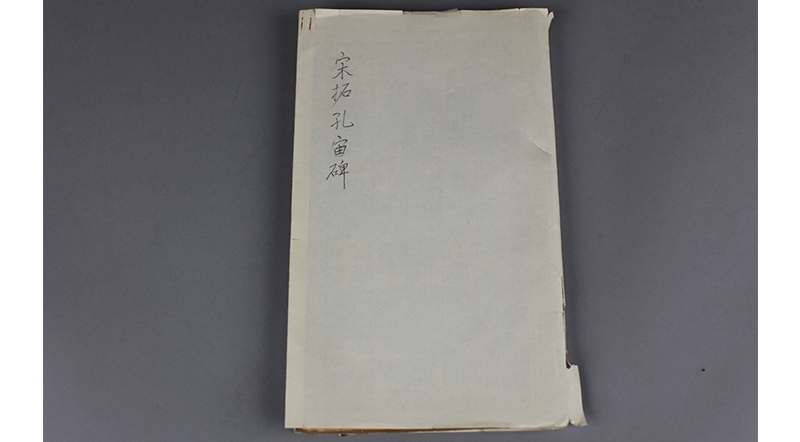 宋拓孔宙碑